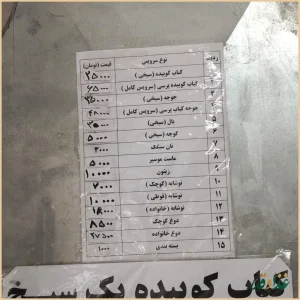 ردیف نوع سرویس قیمت (تومان)
۱ کباب کوبیده (سیخی) ۲۵۰۰۰
۲ کباب کوبیده پرسی (سرویس کامل) ۶۵۰۰۰
۳ جوجه (سیخی) ۲۵۰۰۰
۴ جوجه کباب پرسی (سرویس کامل)
۵ بال (سیخی)
۶ گوجه (سیخی) ۵۰۰۰
۷ نان سنگک ۳۰۰۰
۸ ماست موسیر ۵۰۰۰
۹ زیتون ۱۰۰۰۰
۱۰ نوشابه (کوچک) ۷۰۰۰
۱۱ نوشابه (قوطی) ۱۰۰۰۰
۱۲ نوشابه (خانواده) ۱۸۰۰۰
۱۳ دوغ کوچک ۸۵۰۰
۱۴ دوغ خانواده ۲۷۵۰۰
۱۵ بسته بندی ۱۰۰۰
کباب کوبیده یک سیخ